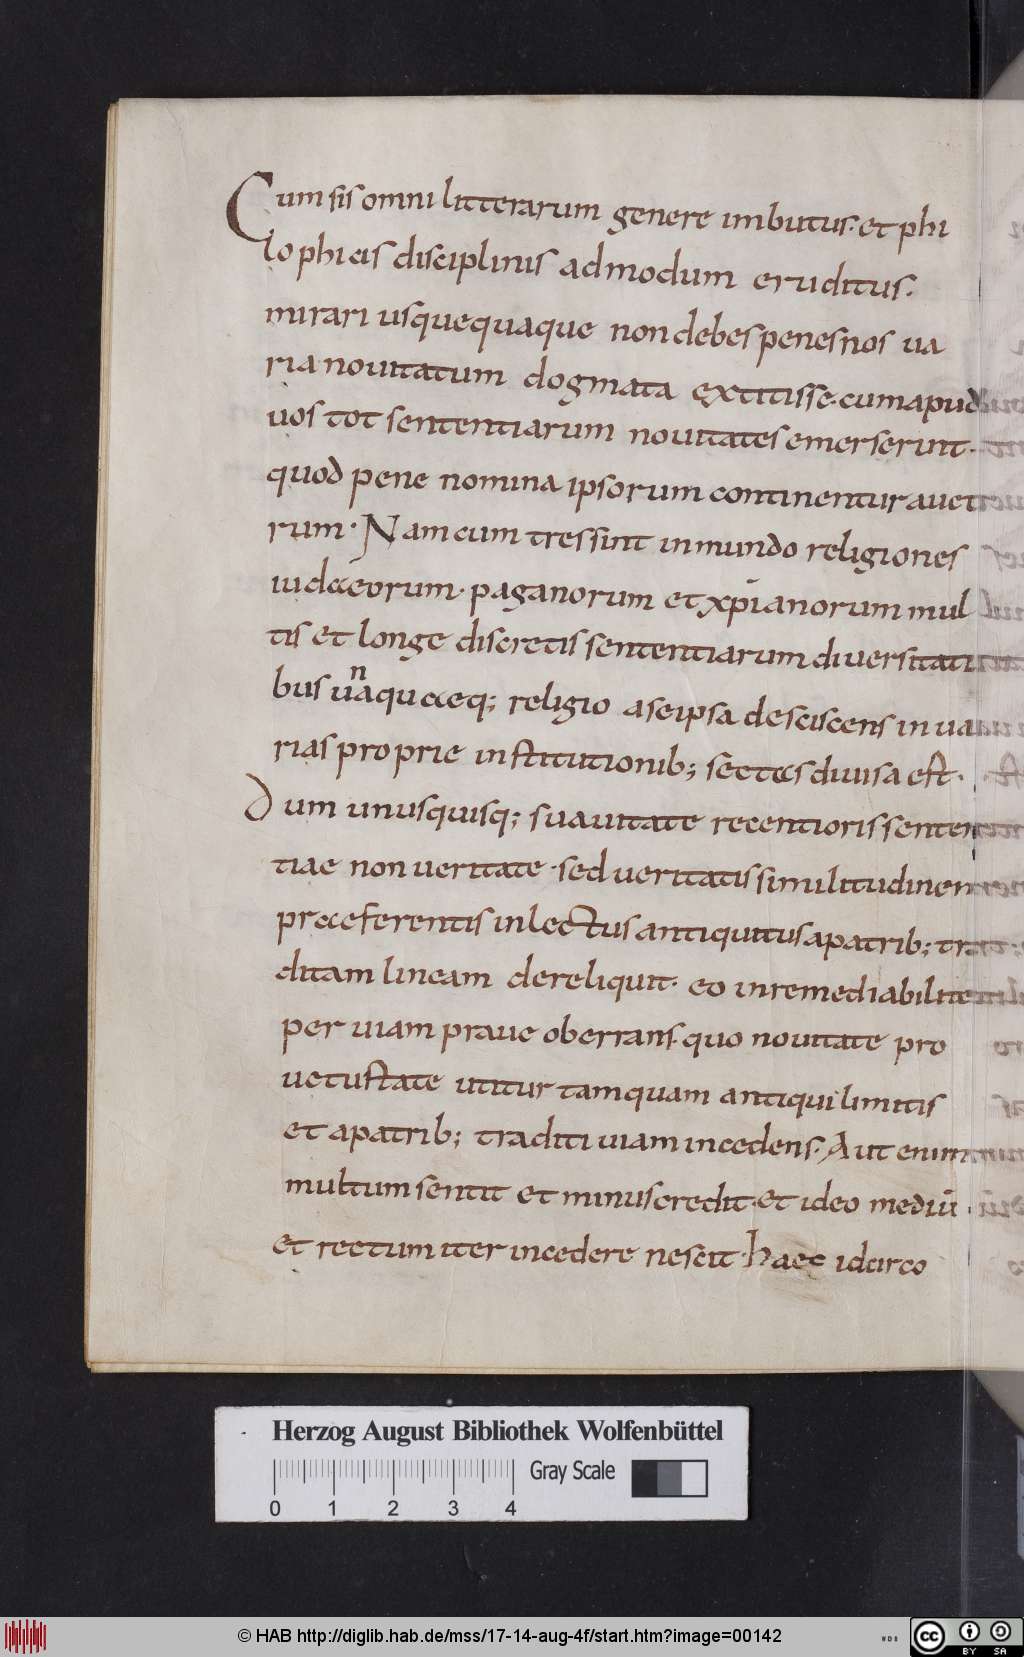 Cum sis omni litterarum genere imbutus· et phi
lophicis disciplinis admodum eruditus·
mirari usquequaque non debes penes nos ua
ria nouitatum dogmata extitisse· cum apud
uos tot sententiarum nouitates emerserint·
quod pene nomina ipsorum continentur auctto
rum· Nam cum tres sint in mundo religiones
iudaeorum· paganorum et xp̄ianorum mul
tis et longe discretis sententiarum diuersitati
bus unaquaeq; religio a se ipsa desciscens in ua
rias proprie institutionib; sectas diuisa est·
Dum unusquisq; suauitate recentioris senten
tiae non ueritate· sed ueritatis similitudinem
praeferentis inlectus antiquitus a patrib; tra
ditam lineam dereliquit· eo inremediabilite
per uiam praue oberrans· quo nouitate pro
uetustate utitur tamquam antiqui limitis
et a patrib; traditi uiam incedens· Aut enim
multum sentit et minus credit· et ideo mediū
et rectum iter incedere nescit· haec idcirco
Herzog August Bibliothek Wolfenbüttel
Gray Scale
0 1 2 3 4
© HAB http://diglib.hab.de/mss/17-14-aug-4f/start.htm?image=00142
WDB
cc BY SA